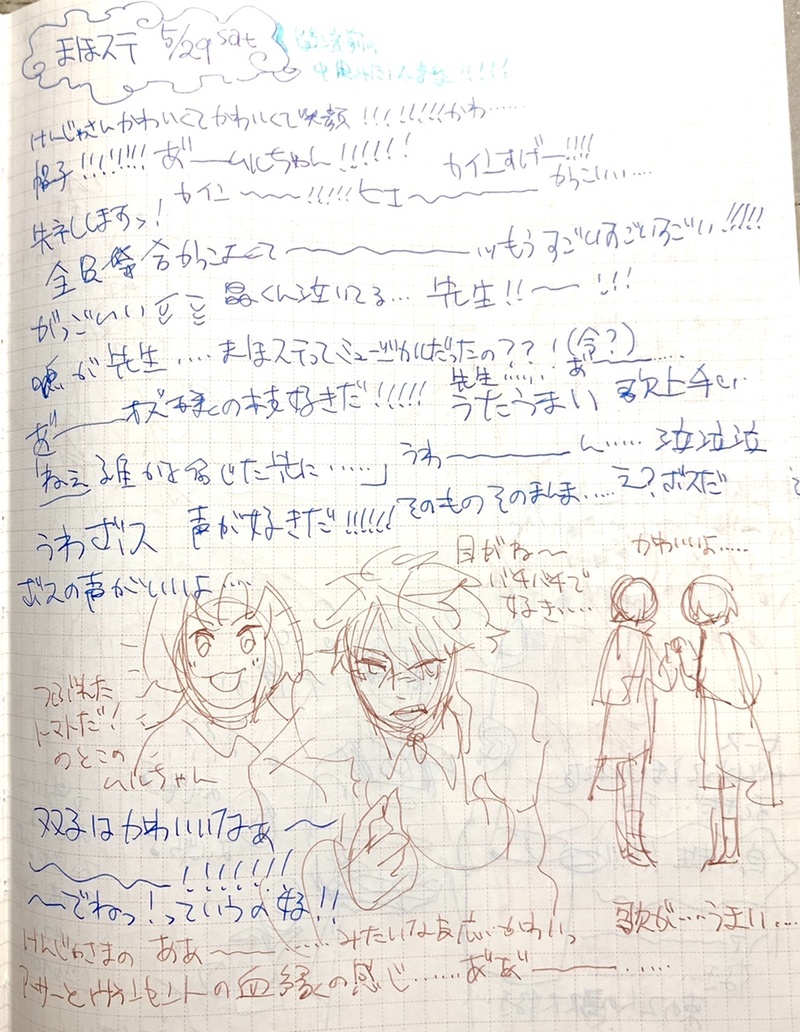 まほステ 5/29 sat
けんじゃさんかわいくてかわいくて笑顔!!!!!!!!!かわ……
帽子!!!!!!!! あ゛──ムルちゃん!!!!!!
カインすげー!!!!
かっこいい….
カイン〜〜!!!!!ヒェ〜
失礼しますッ!
全員集合かっこよくて〜〜ッッもうすごいすごいすごい!!!!!
がっごいい 晶くん泣いてる… 先生!!〜!!!
嘘が先生…..まほステってミュージカルだったの??!(今?)
あ゛──オズ様との枝好きだ!!!!!
先生…… あ──……
うたうまい 歌上手い..
「ねえ誰かを信じた先に……」
うわ──ん…… 泣泣泣
うわボス 声が好きだ!!!!!!
そのものそのまんま….. え?ボスだ
ボスの声がいいよ….
目がね〜
バチバチで
好き…..
かわいいよ…..
つぶれた
トマトだ!
のとこの
ムルちゃん
双子はかわいいなぁ〜
〜!!!!!!!
〜でねっ!っていうの好!!
けんじゃさまの ああ──……みたいな反応かわいっ
歌が…うまい….
アーサーとヴィンセントの血縁の感じ……あ゛あ゛──…..